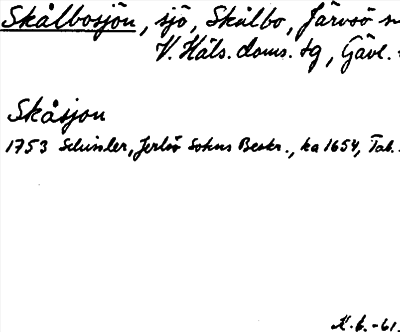 Skålbosjön, sjö, Skålbo, Järvsö
V. Häls. doms. tg, Gävl.
Skåsjon
1753 Schissler, Jerfsö Sokns Beskr., ka 1654, Tab.
K.b.-61.